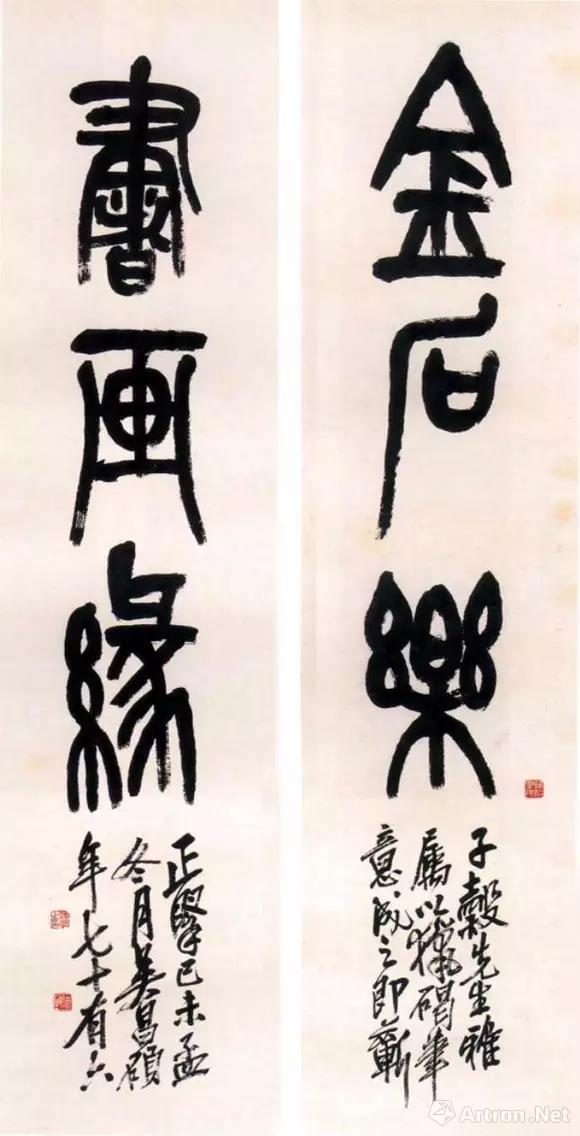 金石樂
子穀先生雅
屬以獵碣筆
意成之即蘄
書画緣
正擘己未孟
冬月吳昌碩
年七十有六
Artron.Net